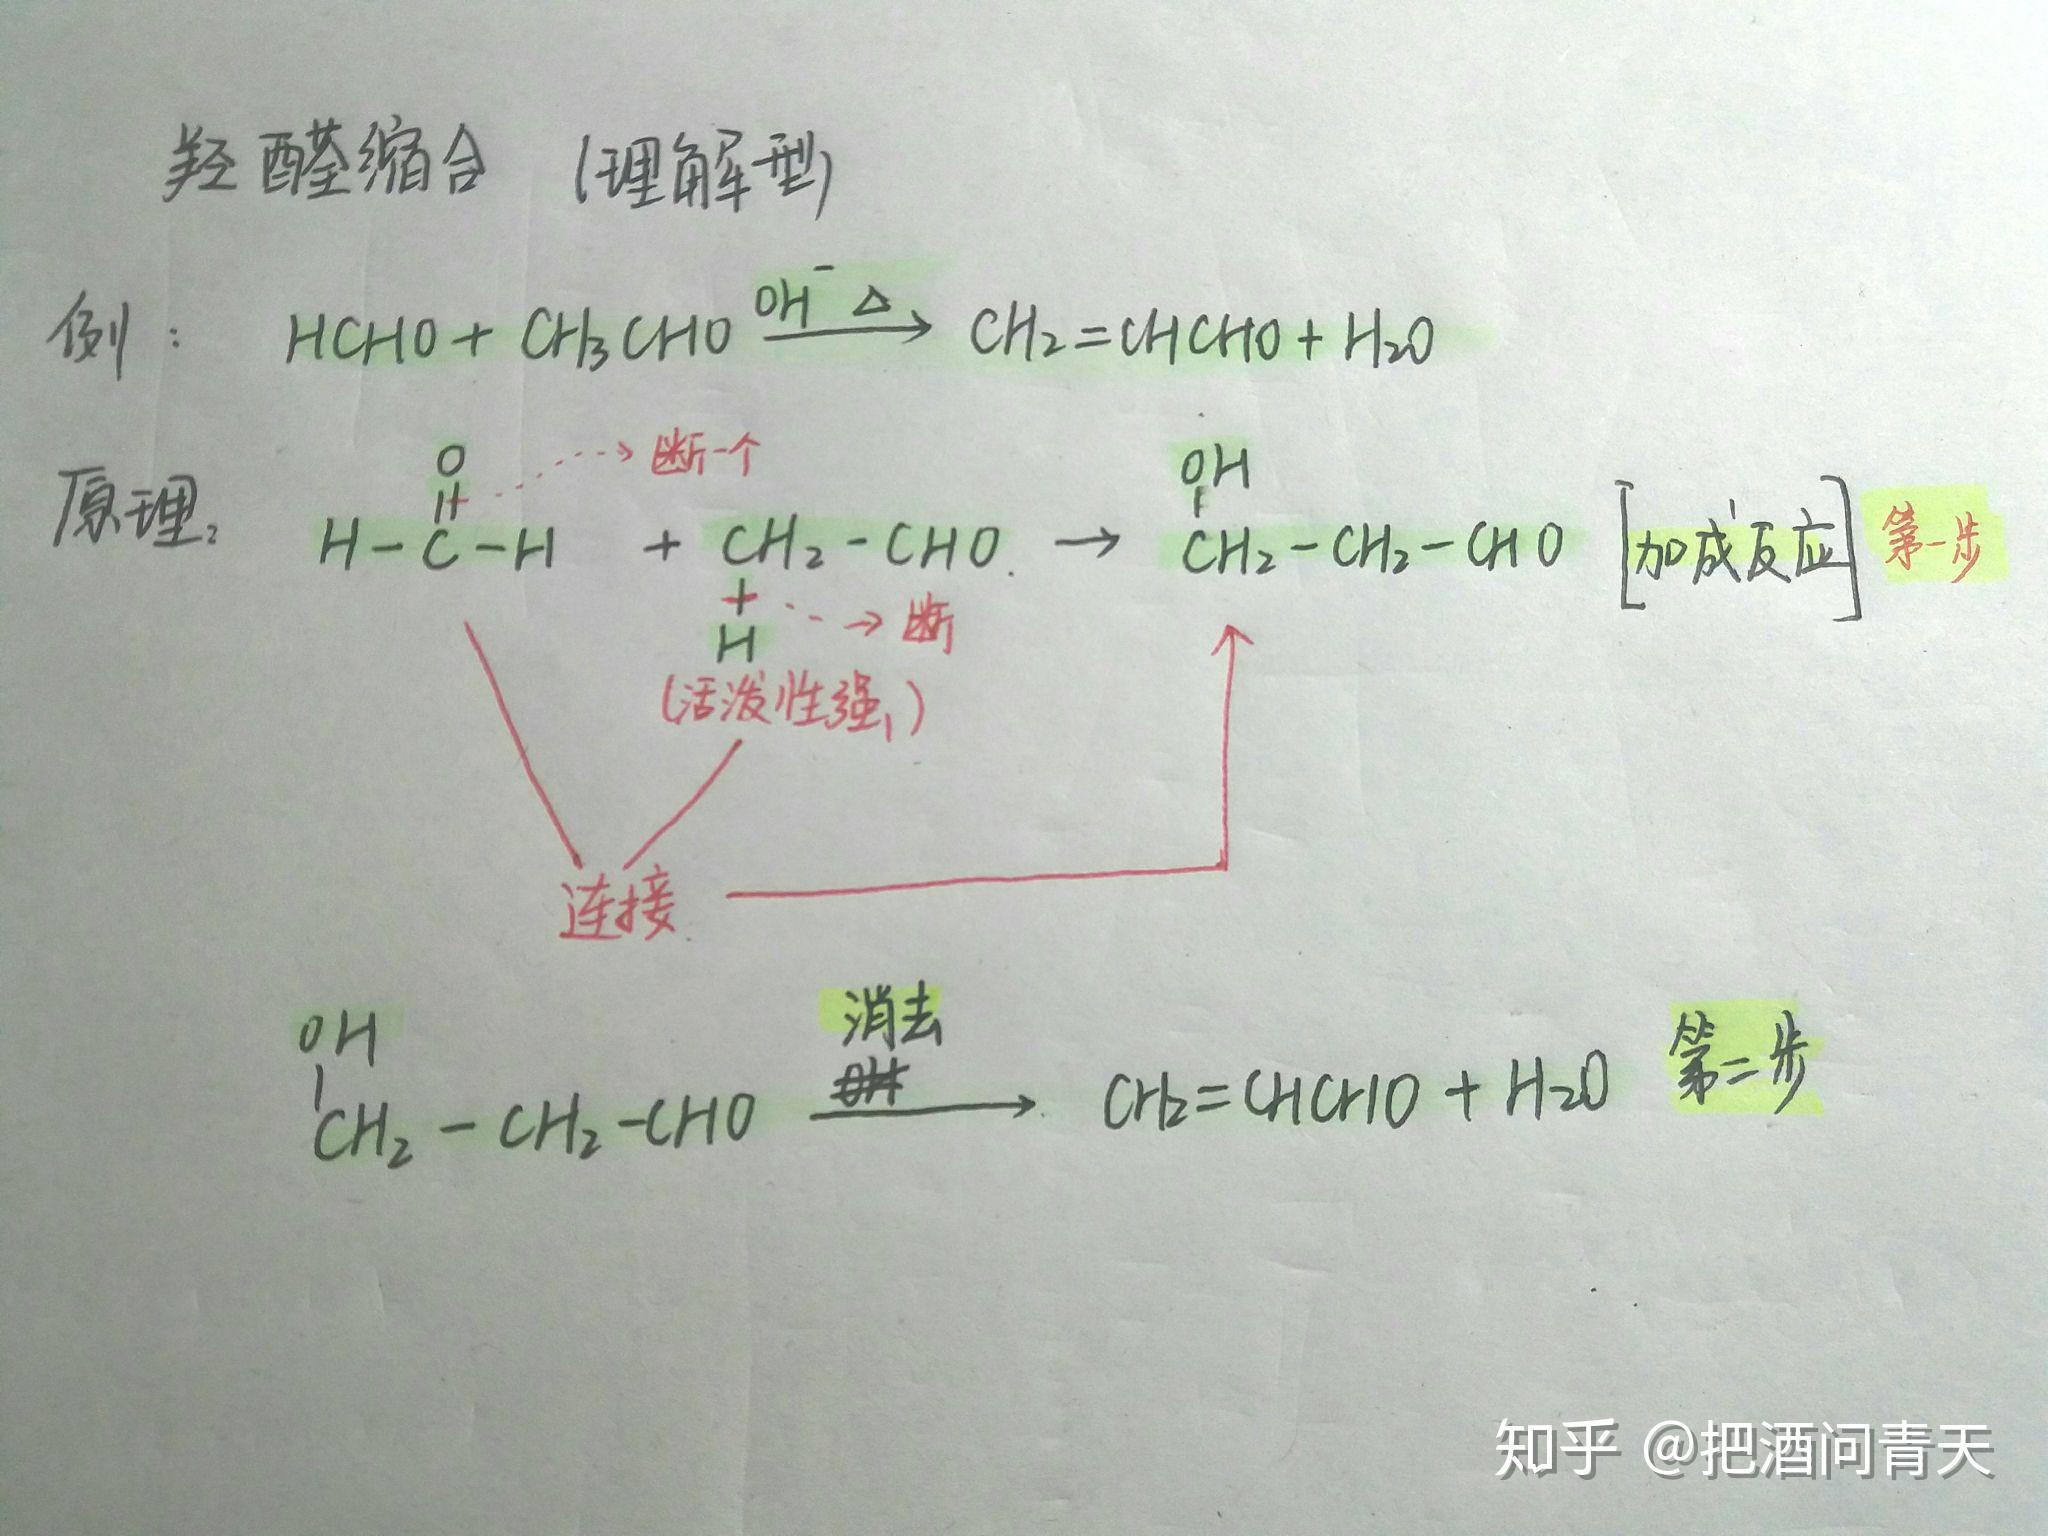 羟醛缩合 (理解型)
例: HCHO + CH₃CHO OH⁻ △ → CH₂=CHCHO + H₂O
O 断一个 OH
原理: H-C-H + CH₂-CHO → CH₂-CH₂-CHO [加成反应] 第一步
H 断
(活泼性强)
连接
OH 消去
CH₂-CH₂-CHO → CH₂=CHCHO + H₂O 第二步
知乎 @把酒问青天